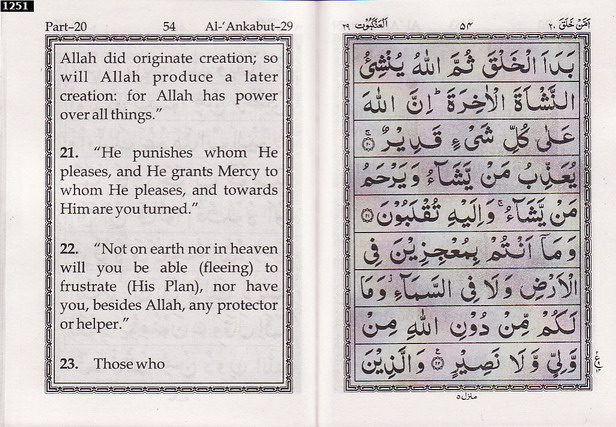 1251
Part-20 54 Al-'Ankabut-29
Allah did originate creation; so
will Allah produce a later
creation: for Allah has power
over all things."
21. "He punishes whom He
pleases, and He grants Mercy to
whom He pleases, and towards
Him are you turned."
22. "Not on earth nor in heaven
will you be able (fleeing) to
frustrate (His Plan), nor have
you, besides Allah, any protector
or helper."
23. Those who
اَمَّنْ خَلَقَ ٢٠ ٥٤ اَلْعَنْكَبُوْت ٢٩
بَدَاَ الْخَلْقَ ثُمَّ اللّٰهُ يُنْشِئُ
النَّشْاَةَ الْاٰخِرَةَ ؕ اِنَّ اللّٰهَ
عَلٰى كُلِّ شَىْءٍ قَدِيْرٌ ۚ﴿٢٠﴾
يُعَذِّبُ مَنْ يَّشَآءُ وَيَرْحَمُ
مَنْ يَّشَآءُ ۚ وَاِلَيْهِ تُقْلَبُوْنَ ﴿٢١﴾
وَمَاۤ اَنْتُمْ بِمُعْجِزِيْنَ فِى
الْاَرْضِ وَلَا فِى السَّمَآءِ ؗ وَمَا
لَكُمْ مِّنْ دُوْنِ اللّٰهِ مِنْ
وَّلِىٍّ وَّلَا نَصِيْرٍ ﴿٢٢﴾ وَالَّذِيْنَ
منزل ٥